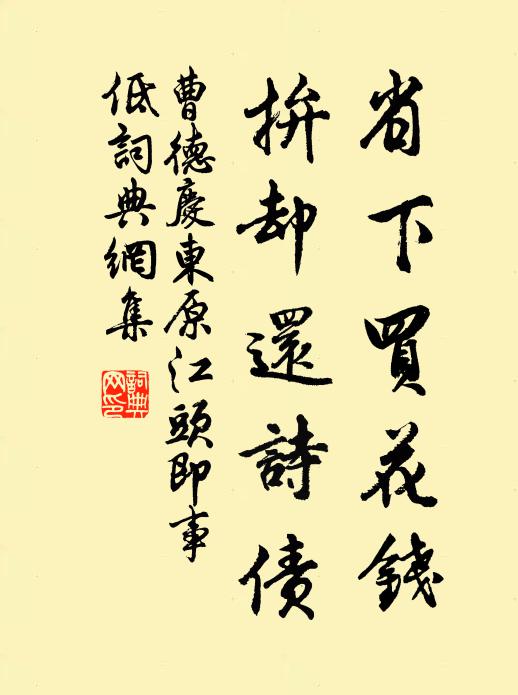 省下買花錢
拚却還詩债
曹德慶東原江頭即事
低詞典網集
詞典
网印